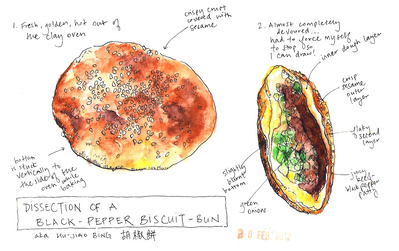 1. Fresh, golden, hot out of
the clay oven
crispy crust
covered with
sesame
bottom
is stuck
vertically to
the side of the
oven while
baking
2. Almost completely
devoured...
had to force myself
to stop so
I can draw!
inner dough layer
crisp
sesame
outer
layer
flaky
second
layer
juicy
beef-
black pepper
patty
slightly
burnt
bottom
green
onions
DISSECTION OF A
BLACK-PEPPER BISCUIT-BUN
aka HU-JIAO BING 胡椒餅
FEB 2012